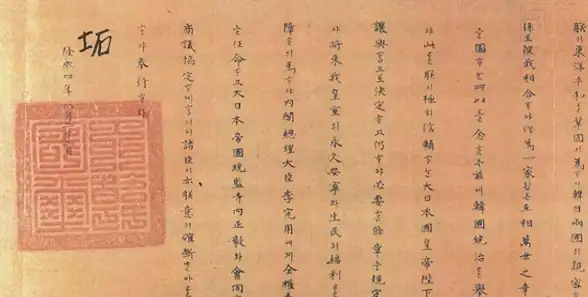 朕이東洋平和를鞏固히爲ᄒᆞ야韓日兩國의親密
係로彼我相合ᄒᆞ야作爲一家ᄂᆞᆫ互相萬世之幸
을圖ᄒᆞᄂᆞᆫ所以로念ᄒᆞᆫ本玆에韓國統治를擧
야此를朕이極히信賴ᄒᆞᄂᆞᆫ大日本國皇帝陛下
讓與ᄒᆞ기로決定ᄒᆞ고仍ᄒᆞ야必要ᄒᆞᆫ條章을規定
야將來我皇室의永久安寧과生民의福利를
障ᄒᆞ기爲ᄒᆞ야內閣總理大臣李完用에게全權
을任命ᄒᆞ고大日本帝國統監寺內正毅와會同
商議協定케ᄒᆞ노니諸臣이亦朕意의確斷ᄒᆞᆫ바를
ᄒᆞ야奉行ᄒᆞ라
隆熙四年八月
坧